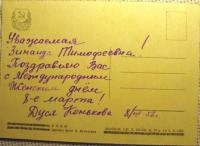 Уважаемая
Зинаида Тимофеевна!
Поздравляю Вас
с Международным
Женским днём,
8-е марта!
Дуся Конькова